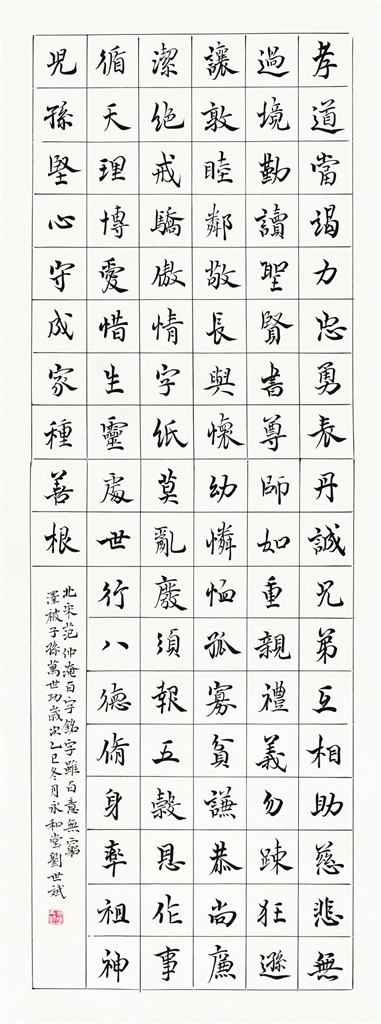 孝道當竭力忠勇表丹誠兄弟互相助慈悲無
過境勤讀聖賢書尊師如重親禮義勿踈狂遜
讓敦睦鄰敬長與懷幼憐恤孤寡貧謙恭尚廉
潔絶戒驕傲情字紙莫亂廢須報五榖恩作事
循天理博愛惜生靈處世行八德脩身率祖神
児孫堅心守成家種善根
北宋范仲淹百字銘字雖百意無窮
澤被子孫萬世功歲次乙巳冬月永和堂劉世斌